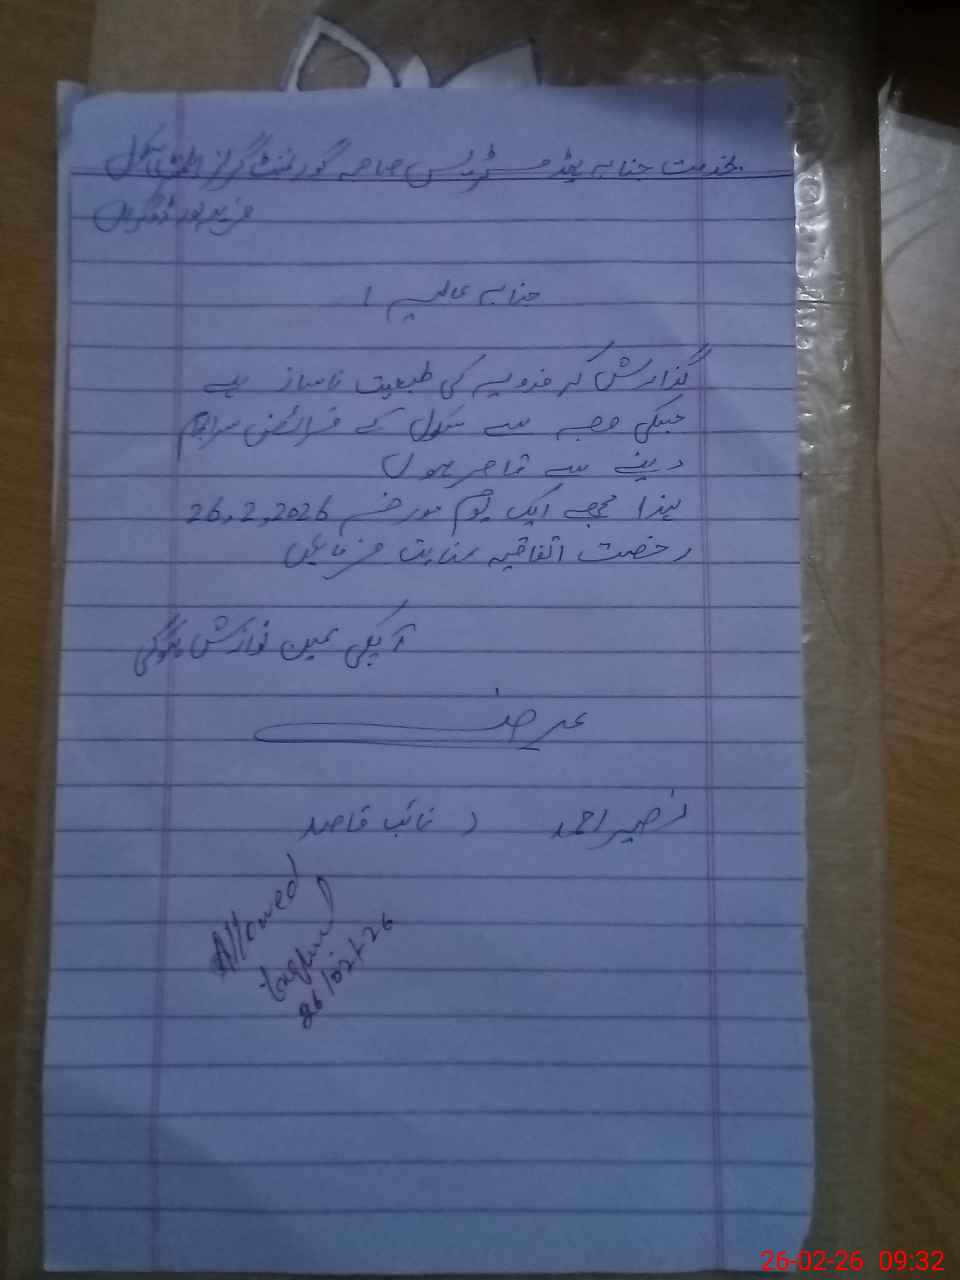 بخدمت جنابہ ہیڈ مسٹریس صاحبہ گورنمنٹ گرلز ہائی سکول
جنابہ عالیہ !
گذارش کہ فدویہ کی طبعیت ناساز ہے
جسکی وجہ سے سکول کے فرائض سرانجام
دینے سے قاصر ہوں
لہذا مجھے ایک یوم مورخہ 26,2,2026
رخصت اتفاقیہ عنایت فرمائیں
آپکی عین نوازش ہوگی
عرضے
نصیر احمد ، نائب قاصد
Allowed
26/02/26
26-02-26 09:32